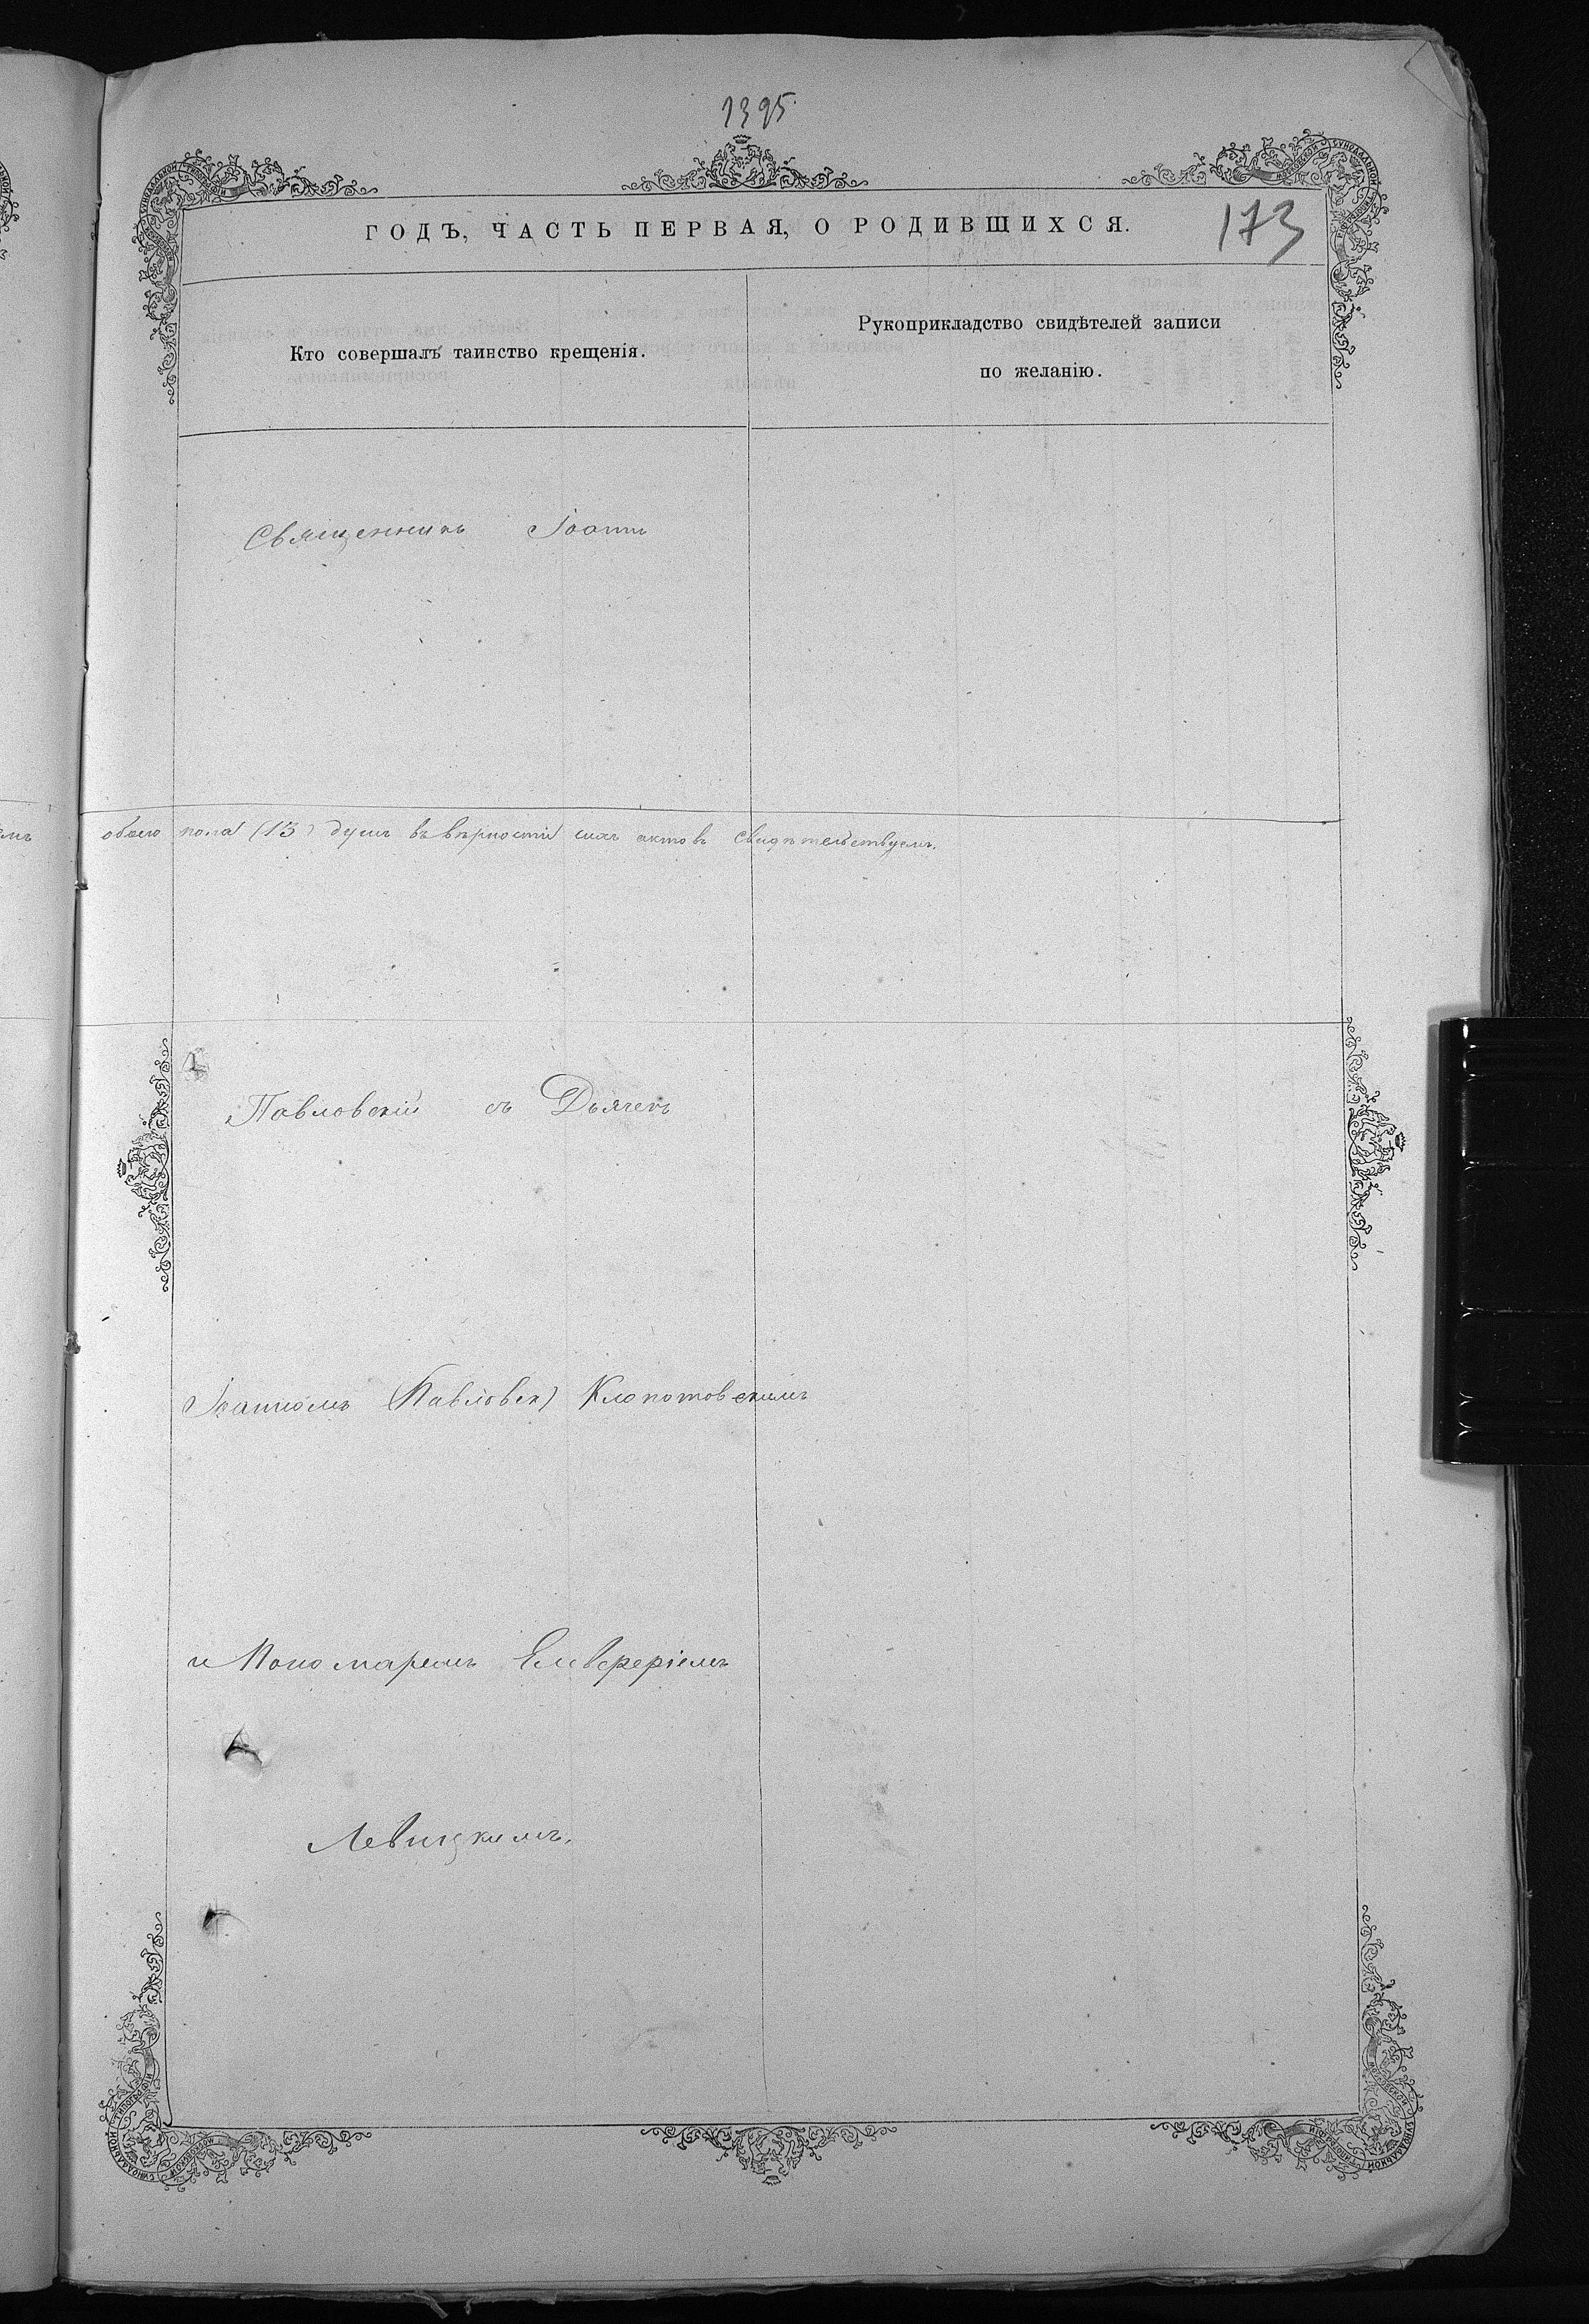 1395
ГОДЪ, ЧАСТЬ ПЕРВАЯ, О РОДИВШИХСЯ.
173
Кто совершалъ таинство крещенія.
Рукоприкладство свидѣтелей записи
по желанію.
Священникъ Іоаннъ
обоего пола (13) душъ въ вѣрности сихъ актовъ свидѣтельствуемъ.
Павловскій съ Дьячек
Іоанномъ (Павловск) Клопотовскимъ
и Пономаремъ Елевферіемъ
Левицкимъ.